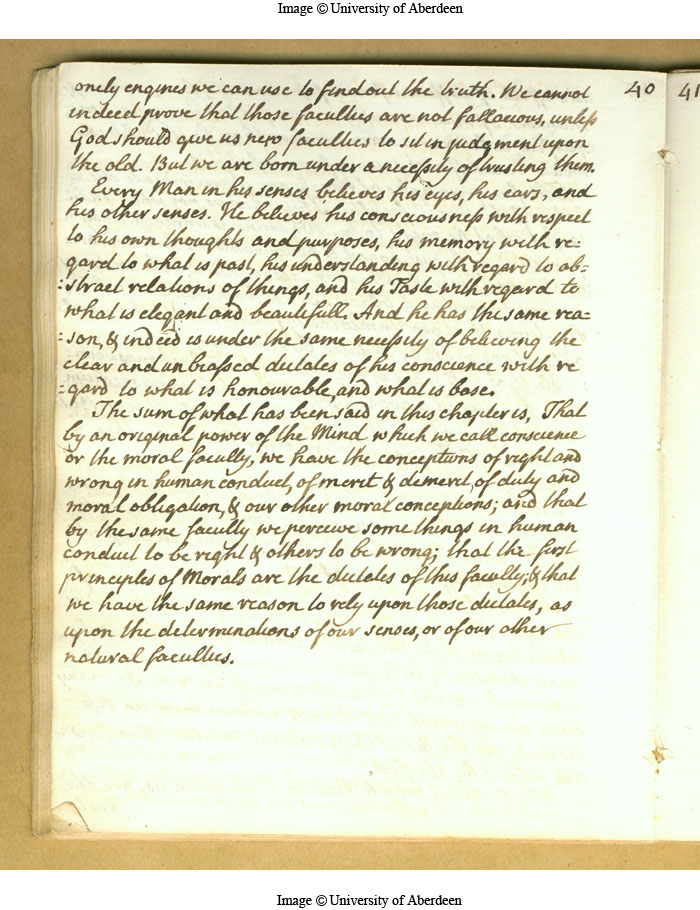 Image © University of Aberdeen
40
41
onely engines we can use to find out the truth. We cannot
indeed prove that those faculties are not fallacious, unless
God should give us new faculties to sit in judgment upon
the old. But we are born under a necessity of trusting them.
Every Man in his senses believes his eyes, his ears, and
his other senses. He believes his consciousness with respect
to his own thoughts and purposes, his memory with re=
gard to what is past, his understanding with regard to ab=
=stract relations of things, and his Taste with regard to
what is elegant and beautifull. And he has the same rea=
=son, & indeed is under the same necessity of believing the
clear and unbiassed dictates of his conscience with re
=gard to what is honourable, and what is base.
The sum of what has been said in this chapter is, That
by an original power of the Mind which we call conscience
or the moral faculty, we have the conceptions of right and
wrong in human conduct, of merit & demerit, of duty and
moral obligation, & our other moral conceptions; and that
by the same faculty we perceive some things in human
conduct to be right & others to be wrong; that the first
principles of Morals are the dictates of this faculty; & that
we have the same reason to rely upon those dictates, as
upon the determinations of our senses, or of our other
natural faculties.
Image © University of Aberdeen